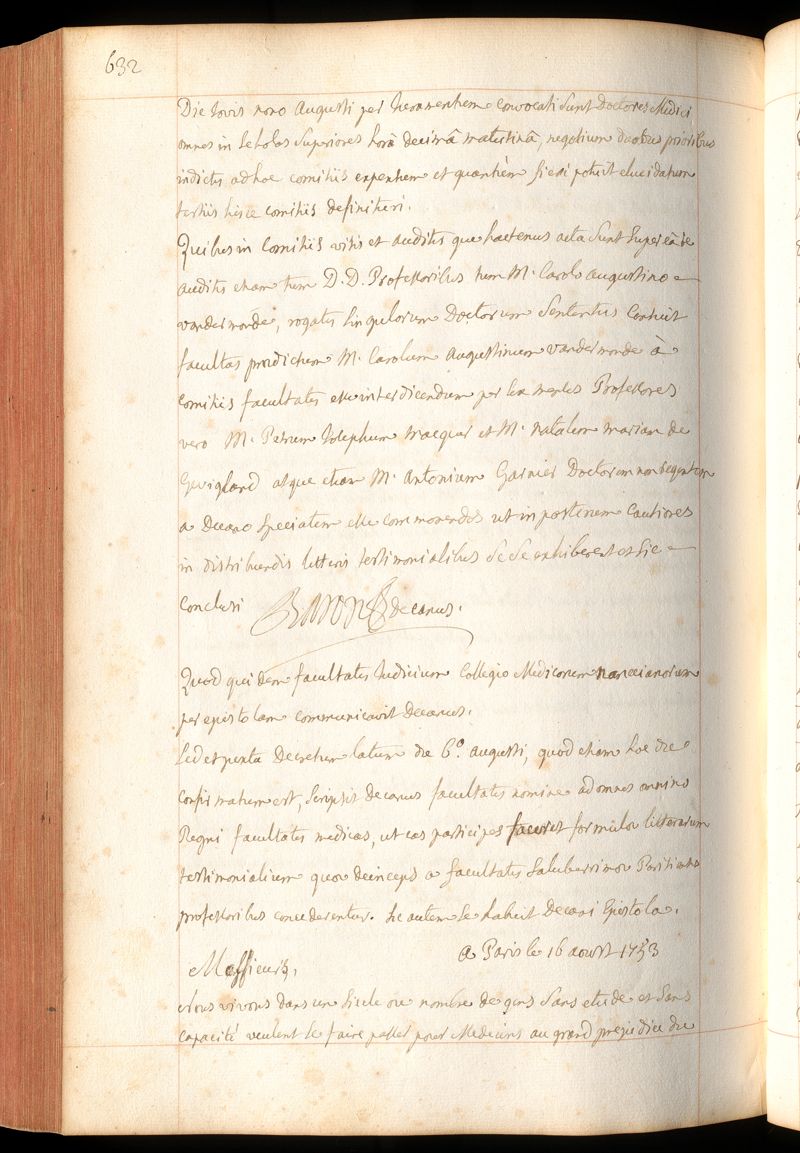 632
Die Jovis nono Augusti per convocati sunt Doctores Medici
omnes in scholas Superiores horâ decimâ matutinâ, negotium duobus prioribus
indictis ad hoc comitiis expensum et quantùm fieri potuit elucidatum
tertiis hisce comitiis definituri.
Quibus in Comitiis visis et auditis quæ hactenus acta sunt super eâ re
auditis etiam tum D.D. Professoribus tum M. Carolo Augustino
vandermonde, rogatis singulorum Doctorum Sententiis Censuit
facultas prædictum M. Carolum Augustinum vandermonde à
Comitiis facultatis esse interdicendum per sex menses Professores
vero M. Petrum Josephum Macquer et M. Natalem mariam de
Gevigland atque etiam M. Antonium Garnier Doctorem non Regentem
a Decano speciatim esse commonendos ut in posterum Cautiores
in distribuendis litteris testimonialibus se se exhiberent et sic
Conclusi BARON decanus.
Quod quidem facultatis Judicium Collegio Medicorum nanceianorum
per epistolam communicavit Decanus.
Sed et juxta Decretum latum die 6º. augusti, quod etiam hoc die
confirmatum est, scripsit decanus facultatis nomine ad omnes omnino
Regni facultates medicas, ut eas participes faceret formulæ litterarum
testimonialium quæ deinceps a facultatis Saluberrimæ Parisiensis
professoribus concederentur. Sic autem se habuit Decani Epistola.
a Paris le 16 aoust 1753
Messieurs,
Nous vivons dans un siecle ou nombre de gens sans etude et sans
capacité veulent se faire passer pour Medecins au grand prejudice du